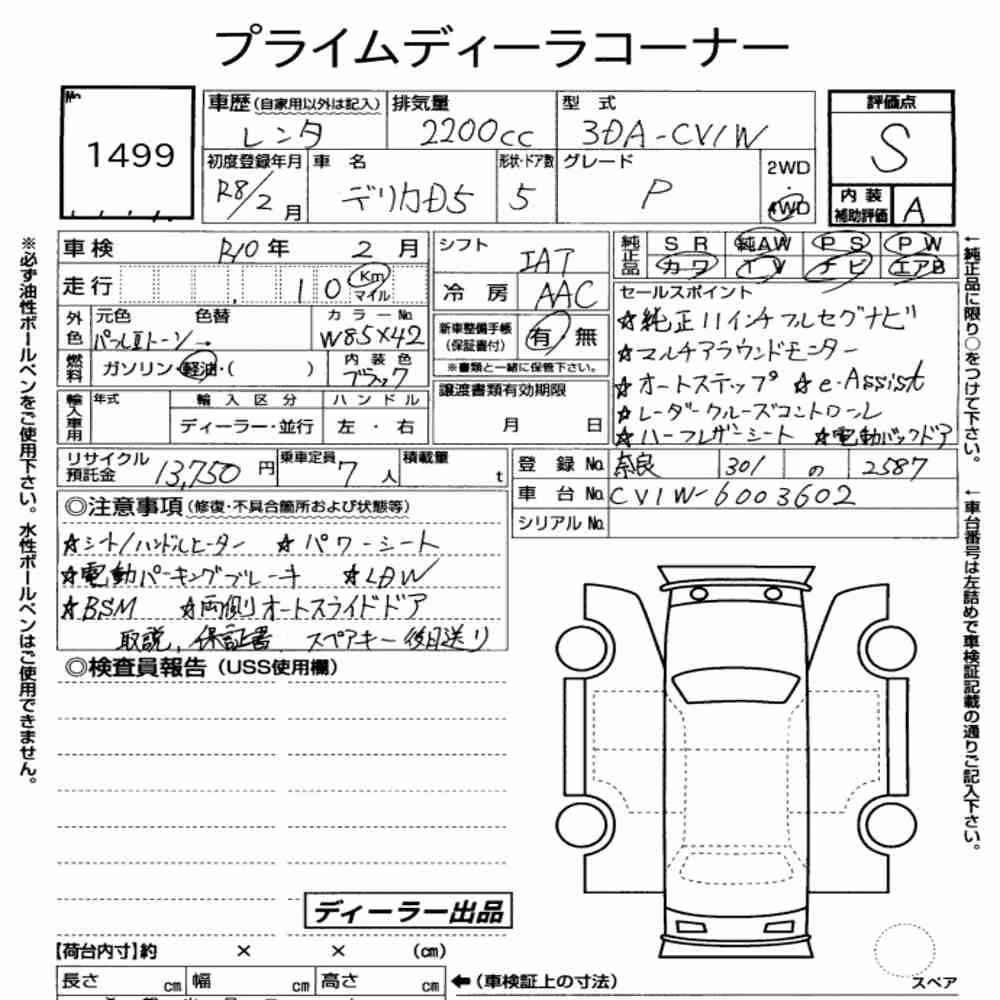 プライムディーラコーナー
No.
1499
車歴(自家用以外は記入) レンタ
排気量 2200cc
型式 3DA-CV1W
評価点 S
初度登録年月 R8/2月
車名 デリカD5
形状・ドア数 5
グレード P
2WD・4WD
内装補助評価 A
車検 R10年 2月
走行 10 Km マイル
シフト IAT
冷房 AAC
純正品 SR 純AW PS PW
カワ TV ナビ エアB
外色 元色 色替 カラーNo.
パールIIトーン→ W85X42
燃料 ガソリン・軽油・( )
内装色 ブラック
新車整備手帳(保証書付) 有 無
※書類と一緒に保管下さい。
セールスポイント
☆純正11インチフルセグナビ
☆マルチアラウンドモニター
☆オートステップ ☆e-Assist
☆レーダークルーズコントロール
☆ハーフレザーシート ☆電動バックドア
輸入車用 年式 輸入区分 ハンドル
ディーラー・並行 左・右
譲渡書類有効期限
月 日
リサイクル預託金 13,750円
乗車定員 7人
積載量 t
登録No. 奈良 301 の 2587
車台No. CV1W-6003602
シリアルNo.
◎注意事項(修復・不具合箇所および状態等)
☆シート/ハンドルヒーター ☆パワーシート
☆電動パーキングブレーキ ☆LDW
☆BSM ☆両側オートスライドドア
取説、保証書 スペアキー後日送り
◎検査員報告(USS使用欄)
ディーラー出品
【荷台内寸】約 × × (cm)
長さ cm 幅 cm 高さ cm
←(車検証上の寸法)
スペア
※必ず油性ボールペンをご使用下さい。水性ボールペンはご使用できません。
←純正品に限り○をつけて下さい。
←車台番号は左詰めで車検証記載の通りご記入下さい。